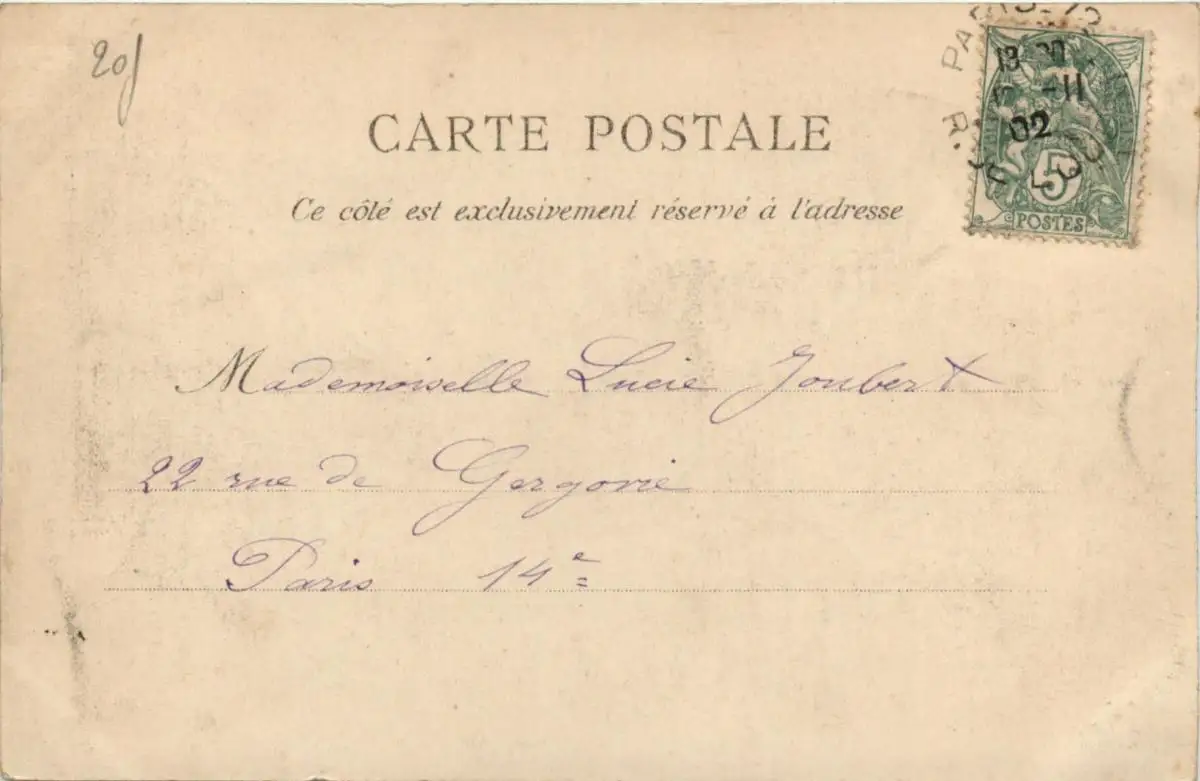 20f
PARIS
18 30
-11
02
5
POSTES
CARTE POSTALE
Ce côté est exclusivement réservé à l'adresse
Mademoiselle Lucie Joubert
22 rue de Gergovie
Paris 14e